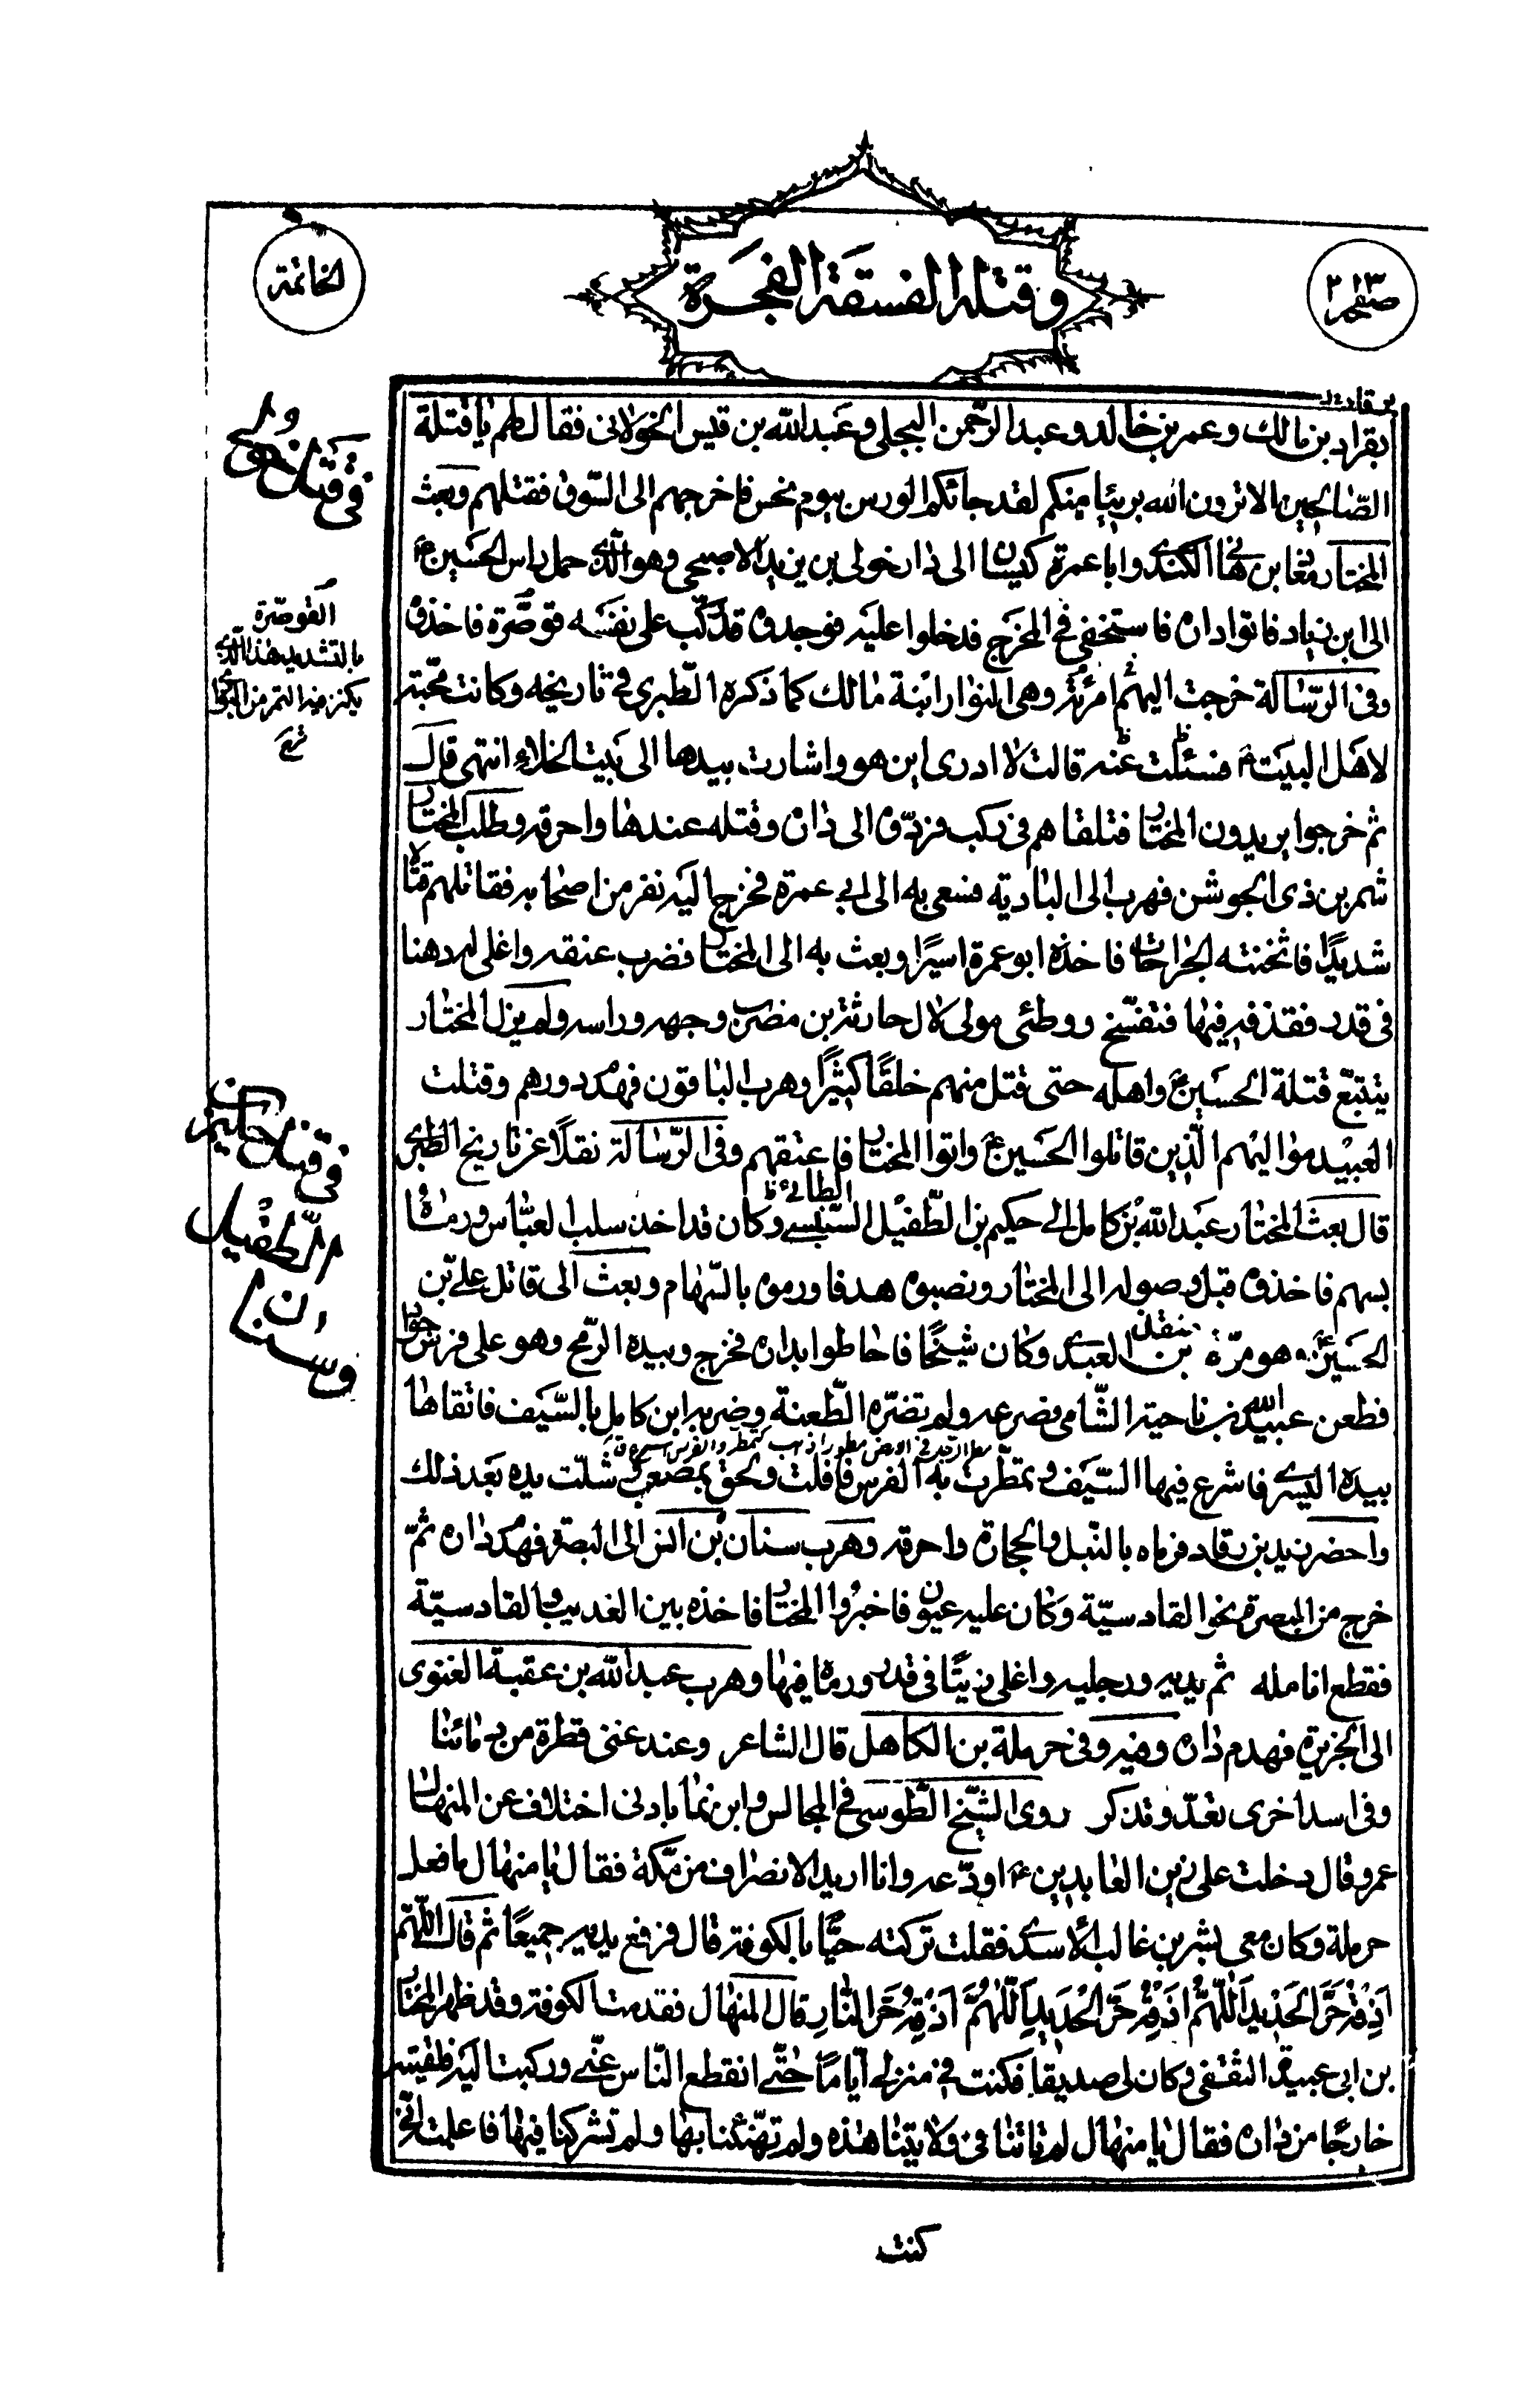 صفحه ٢١٣
وقتله الفسقة الفجرة
الخاتمة
بقراد بن مالك وعمر بن خالد وعبد الرّحمن البجلى وعبد الله بن قيس الخولانى فقال لهم يا قتلة
الصّالحين الا ترون الله بريئا منكم لقد جائكم الورس بيوم نحس فاخرجهم الى السّوق فقتلهم وبعث
المختار معاذ بن هانى الكندى وابا عمرة كيسان الى دار خولى بن يزيد الاصبحى وهو الّذى حمل راس الحسين ع
الى ابن زياد فاتوا داره فاستخفى فى المخرج فدخلوا عليه فوجدوه قد ركب على نفسه قوصّرة فاخذوه
وفى الرّسالة خرجت اليهم امرئته وهى النوار ابنة مالك كما ذكره الطبرى فى تاريخه وكانت محبّته
لاهل البيت ع فسئلت عنه قالت لا ادرى اين هو واشارت بيدها الى بيت الخلاء انتهى قال
ثم خرجوا يريدون المختار فتلقاهم فى ركب فردّوه الى داره وقتله عندها واحرقه وطلب المختار
شمر بن ذى الجوشن فهرب الى البادية فسعى به الى ابى عمرة فخرج اليه نفر من اصحابه فقاتلهم قتالا
شديدًا فاثخنته الجراحات فاخذه ابو عمرة اسيرًا وبعث به الى المختار فضرب عنقه واغلى له دهنا
فى قدر فقذفه فيها فتفسّخ ووطئى مولى لال حارثة بن مضرب وجهه وراسه ولم يزل المختار
يتتبّع قتلة الحسين ع واهله حتى قتل منهم خلقًا كثيرًا وهرب الباقون فهدم دورهم وقتلت
العبيد مواليهم الّذين قاتلوا الحسين ع واتوا المختار فاعتقهم وفى الرّسالة نقلًا عن تاريخ الطبرى
قال بعث المختار عبد الله بن كامل الى حكيم بن الطّفيل السّنبسى الطائى وكان قد اخذ سلب العبّاس ورماه
بسهم فاخذوه قبل وصوله الى المختار ونصبوه هدفا ورموه بالسّهام وبعث الى قاتل على بن
الحسين ع وهو مرّة بن منقذ العبدى وكان شيخًا فاحاطوا بداره فخرج وبيده الرّمح وهو على فرس جواد
فطعن عبيد الله بن ناحية الشّامى فصرعه ولم تضرّه الطّعنة وضربه ابن كامل بالسّيف فاتقاها
بيده اليسرى فاشرع فيها السّيف وتمطّرت به الفرس فافلت ولحق بمصعب وشلّت يده بعد ذلك
واحضر زيد بن رقاد فرماه بالنّبل والحجارة واحرقه وهرب سنان بن انس الى البصرة فهدم داره ثمّ
خرج من البصرة نحو القادسيّة وكان عليه عيون فاخبروا المختار فاخذه بين العذيب والقادسيّة
فقطع انامله ثم يديه ورجليه واغلى زيتًا فى قدر ورماه فيها وهرب عبد الله بن عقبة الغنوى
الى الجزيرة فهدم داره وفيه وفى حرملة بن الكاهل قال الشاعر وعند غنى قطرة من دمائنا
وفى اسد اخرى تعدّ وتذكر روى الشّيخ الطّوسى فى المجالس وابن نما بادنى اختلاف عن المنهال بن
عمرو قال دخلت على زين العابدين ع اودّعه وانا اريد الانصراف من مكّة فقال يا منهال ما فعل
حرملة وكان معى بشر بن غالب الأسدى فقلت تركته حيًّا بالكوفة قال فرفع يديه جميعًا ثم قال اللّهمّ
اَذِقْهُ حَرَّ الحَدِيدِ اَللّهُمَّ اَذِقْهُ حَرَّ الحَدِيدِ اَللّهُمَّ اَذِقْهُ حَرَّ النّارِ قال المنهال فقدمت الكوفة وقد ظهر المختار
بن ابى عبيدة الثقفى وكان لى صديقا فكنت فى منزلى ايّامًا حتّى انقطع النّاس عنّى وركبت اليه فلقيته
خارجًا من داره فقال يا منهال لم تاتنا فى ولايتنا هذه ولم تهنّئنا بها ولم تشركنا فيها فاعلمته انّى
كنت
فى قتل خولى
القوصّرة
بالتشديد هذا الّذى
يكنز فيه التمر من البوارى
فى قتل حكيم بن
الطّفيل
وسنان